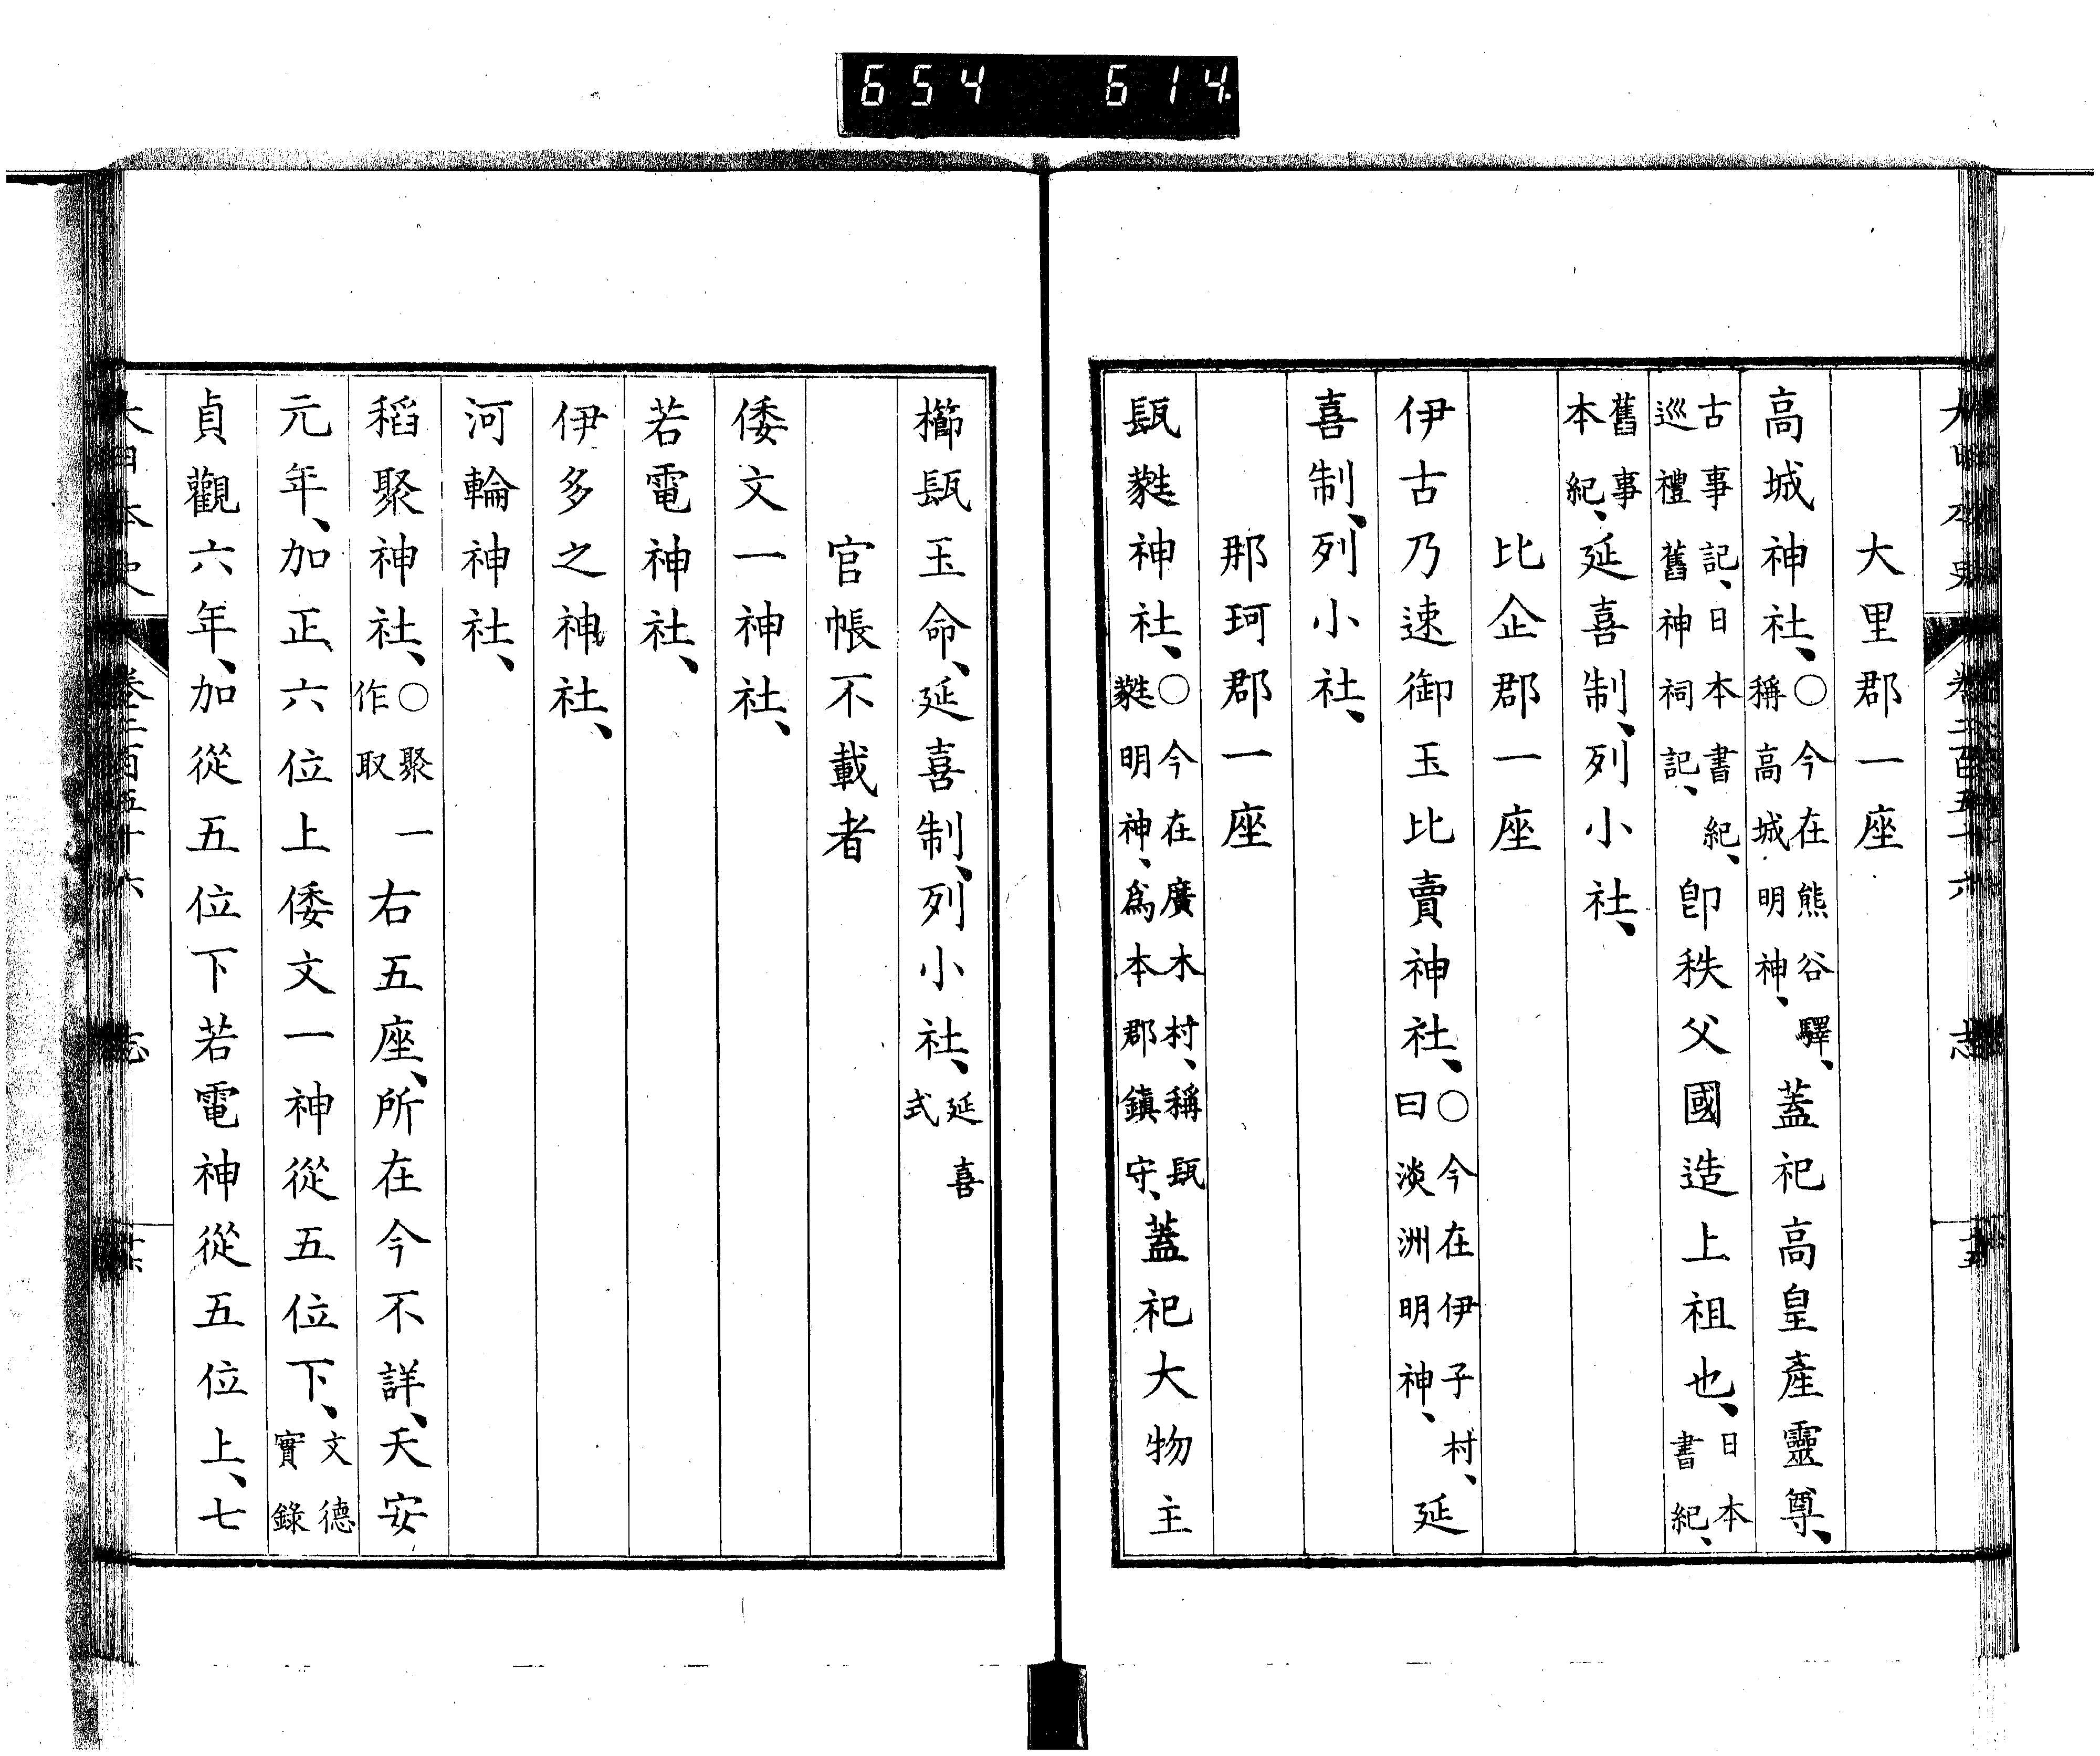 654 614
大日本史 卷二百五十六 志 十五
大里郡一座
高城神社、〇今在熊谷驛、稱高城明神、蓋祀高皇產靈尊、
古事記、日本書紀、巡禮舊神祠記、卽秩父國造上祖也、日本書紀、
舊事本紀、延喜制、列小社、
比企郡一座
伊古乃速御玉比賣神社、〇今在伊子村、曰淡洲明神、延
喜制、列小社、
那珂郡一座
㼵蕤神社、〇今在廣木村、稱㼵蕤明神、爲本郡鎮守、蓋祀大物主
櫛㼵玉命、延喜制、列小社、延喜式
官帳不載者
倭文一神社、
若電神社、
伊多之神社、
河輪神社、
稻聚神社、〇聚一作取 右五座、所在今不詳、天安
元年、加正六位上倭文一神從五位下、文德實錄
貞觀六年、加從五位下若電神從五位上、七
大日本史 卷二百五十六 志